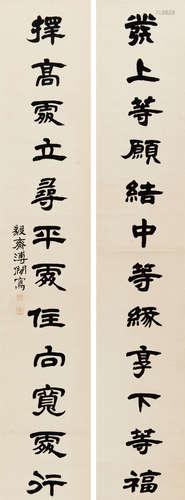 發上等願結中等緣享下等福
擇高處立尋平處住向寬處行
毅齋溥僩寫